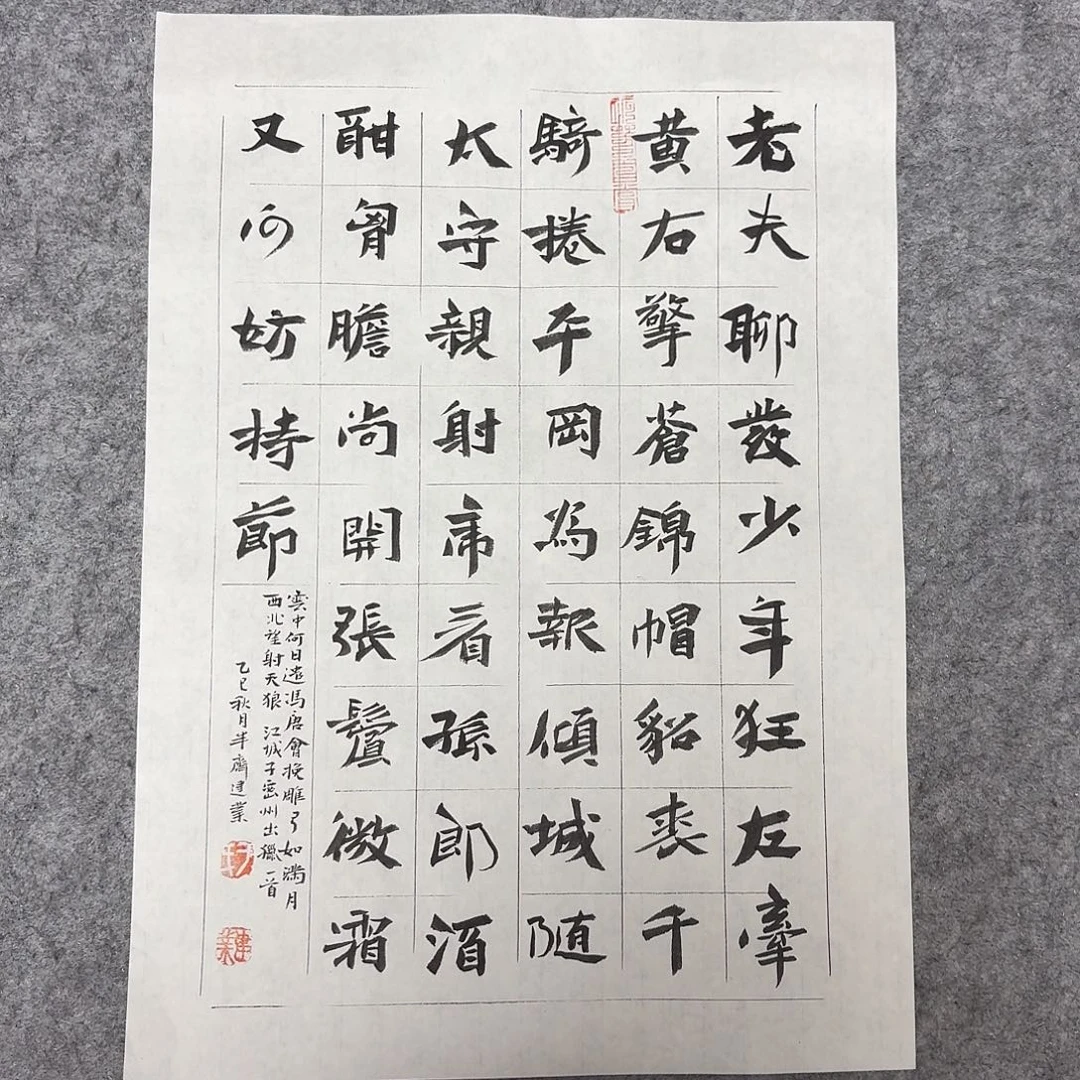 老夫聊發少年狂左牽
黄右擎蒼錦帽貂裘千
騎捲平岡為報傾城随
太守親射虎看孫郎酒
酣胷膽尚開張鬢微霜
又何妨持節
雲中何日遣馮唐會挽雕弓如滿月
西北望射天狼 江城子密州出獵一首
乙巳秋月半齋建業
建業